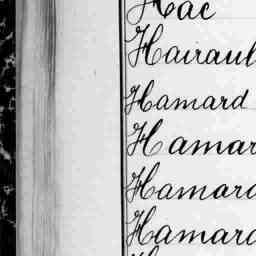 Hac
Hairaul
Hamard
Hamar
Hamard
Hamard